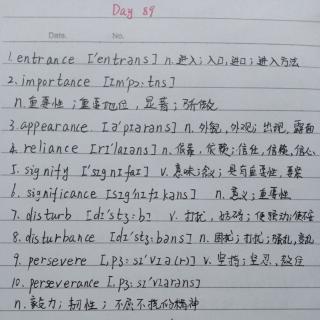 Day 89
Date. No.
1. entrance ['entrəns] n. 进入; 入口, 进口; 进入方法
2. importance [ɪm'pɔ:tns]
n. 重要性; 重要地位, 显著; 骄傲
3. appearance [ə'pɪərəns] n. 外貌, 外观; 出现, 露面
4. reliance [rɪ'laɪəns] n. 依靠, 依赖; 信任, 信赖, 信心
5. signify ['sɪgnɪfaɪ] v. 意味; 意义; 具有重要性, 要紧
6. significance [sɪg'nɪfɪkəns] n. 意义; 重要性
7. disturb [dɪ'stɜ:b] v. 打扰, 妨碍; 使
8. disturbance [dɪ'stɜ:bəns] n. 困扰; 打扰; 骚乱,
9. persevere [,pɜ:sɪ'vɪə(r)] v. 坚持; 坚忍,
10. perseverance [,pɜ:sɪ'vɪərəns]
n. 毅力; 韧性; 不屈不挠的精神